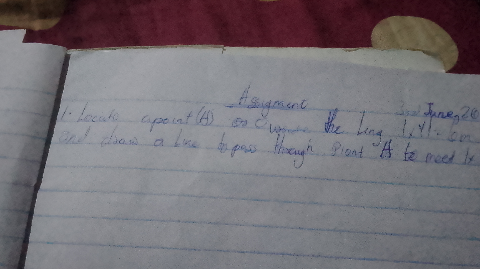 Assignment
June, 26
1. Locate a point (A) on the line
and draw a line to pass through Point A to meet